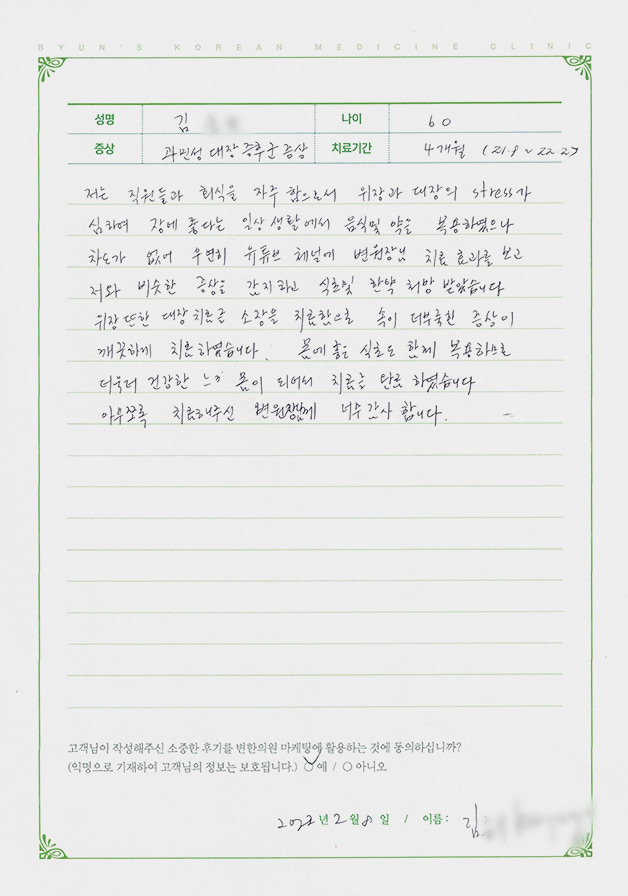 BYUN'S KOREAN MEDICINE CLINIC
성명 김 나이 60
증상 과민성 대장 증후군 증상 치료기간 4개월 (21.9 ~ 22.2)
저는 직원들과 회식을 자주 함으로서 위장과 대장의 stress가
심하여 장에 좋다는 일상 생활에서 음식및 약을 복용하였으나
차도가 없어 우연히 유튜브 채널에 변원장님 치료 효과를 보고
저와 비슷한 증상을 감지하고 식초및 한약 처방 받았습니다
위장 또한 대장 치료로 소장을 치료함으로 속이 더부룩한 증상이
깨끗하게 치료하였습니다. 몸에 좋은 식초도 함께 복용하므로
더욱더 건강한 느낌 몸이 되어서 치료를 완료 하였습니다
아무쪼록 치료해주신 변원장님께 너무 감사 합니다.
고객님이 작성해주신 소중한 후기를 변한의원 마케팅에 활용하는 것에 동의하십니까?
(익명으로 기재하여 고객님의 정보는 보호됩니다.) ○ 예 / ○ 아니오
년 2 월 8 일 / 이름 : 김